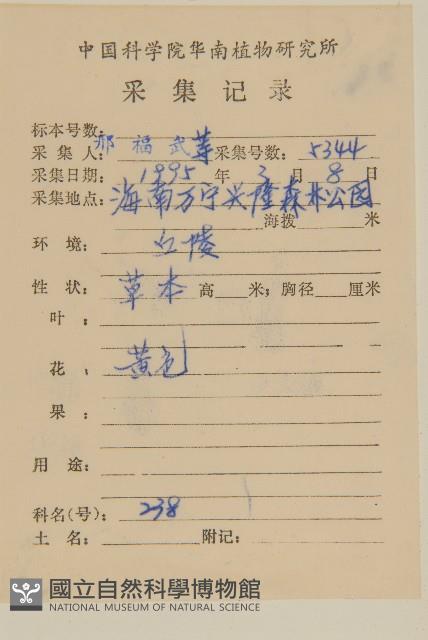 中国科学院华南植物研究所
采集记录
标本号数:
采集人: 邢福武等 采集号数: 5344
采集日期: 1995年3月8日
采集地点: 海南万宁兴隆森林公园
海拨 米
环境: 丘陵
性状: 草本 高 米; 胸径 厘米
叶:
花: 黄色
果:
用途:
科名(号): 238
土名: 附记:
國立自然科學博物館
NATIONAL MUSEUM OF NATURAL SCIENCE